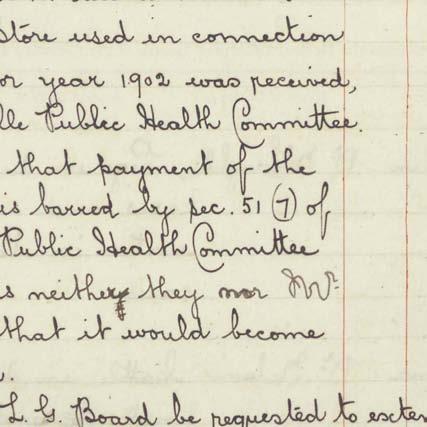 Store used in connection
or year 1902 was received,
lle Public Health Committee.
that payment of the
is barred by sec. 51 (7) of
Public Health Committee
s neither they nor Mr
that it would become
L. G. Board be requested to exten